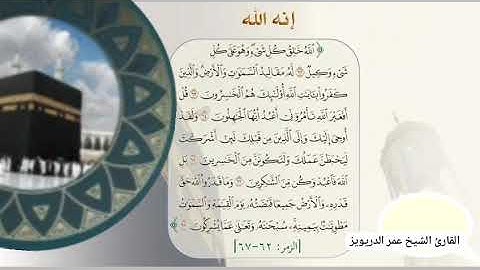 إنه الله
﴿ ٱللَّهُ خَٰلِقُ كُلِّ شَىْءٍ وَهُوَ عَلَىٰ كُلِّ
شَىْءٍ وَكِيلٌ ۝ لَّهُۥ مَقَالِيدُ ٱلسَّمَٰوَٰتِ وَٱلْأَرْضِ وَٱلَّذِينَ
كَفَرُوا۟ بِـَٔايَٰتِ ٱللَّهِ أُو۟لَٰٓئِكَ هُمُ ٱلْخَٰسِرُونَ ۝ قُلْ
أَفَغَيْرَ ٱللَّهِ تَأْمُرُوٓنِّىٓ أَعْبُدُ أَيُّهَا ٱلْجَٰهِلُونَ ۝ وَلَقَدْ
أُوحِىَ إِلَيْكَ وَإِلَى ٱلَّذِينَ مِن قَبْلِكَ لَئِنْ أَشْرَكْتَ
لَيَحْبَطَنَّ عَمَلُكَ وَلَتَكُونَنَّ مِنَ ٱلْخَٰسِرِينَ ۝ بَلِ
ٱللَّهَ فَٱعْبُدْ وَكُن مِّنَ ٱلشَّٰكِرِينَ ۝ وَمَا قَدَرُوا۟ ٱللَّهَ حَقَّ
قَدْرِهِۦ وَٱلْأَرْضُ جَمِيعًا قَبْضَتُهُۥ يَوْمَ ٱلْقِيَٰمَةِ وَٱلسَّمَٰوَٰتُ
مَطْوِيَّٰتٌۢ بِيَمِينِهِۦ سُبْحَٰنَهُۥ وَتَعَٰلَىٰ عَمَّا يُشْرِكُونَ ﴾
[الزمر: ٦٢-٦٧]
القارئ الشيخ عمر الدريويز